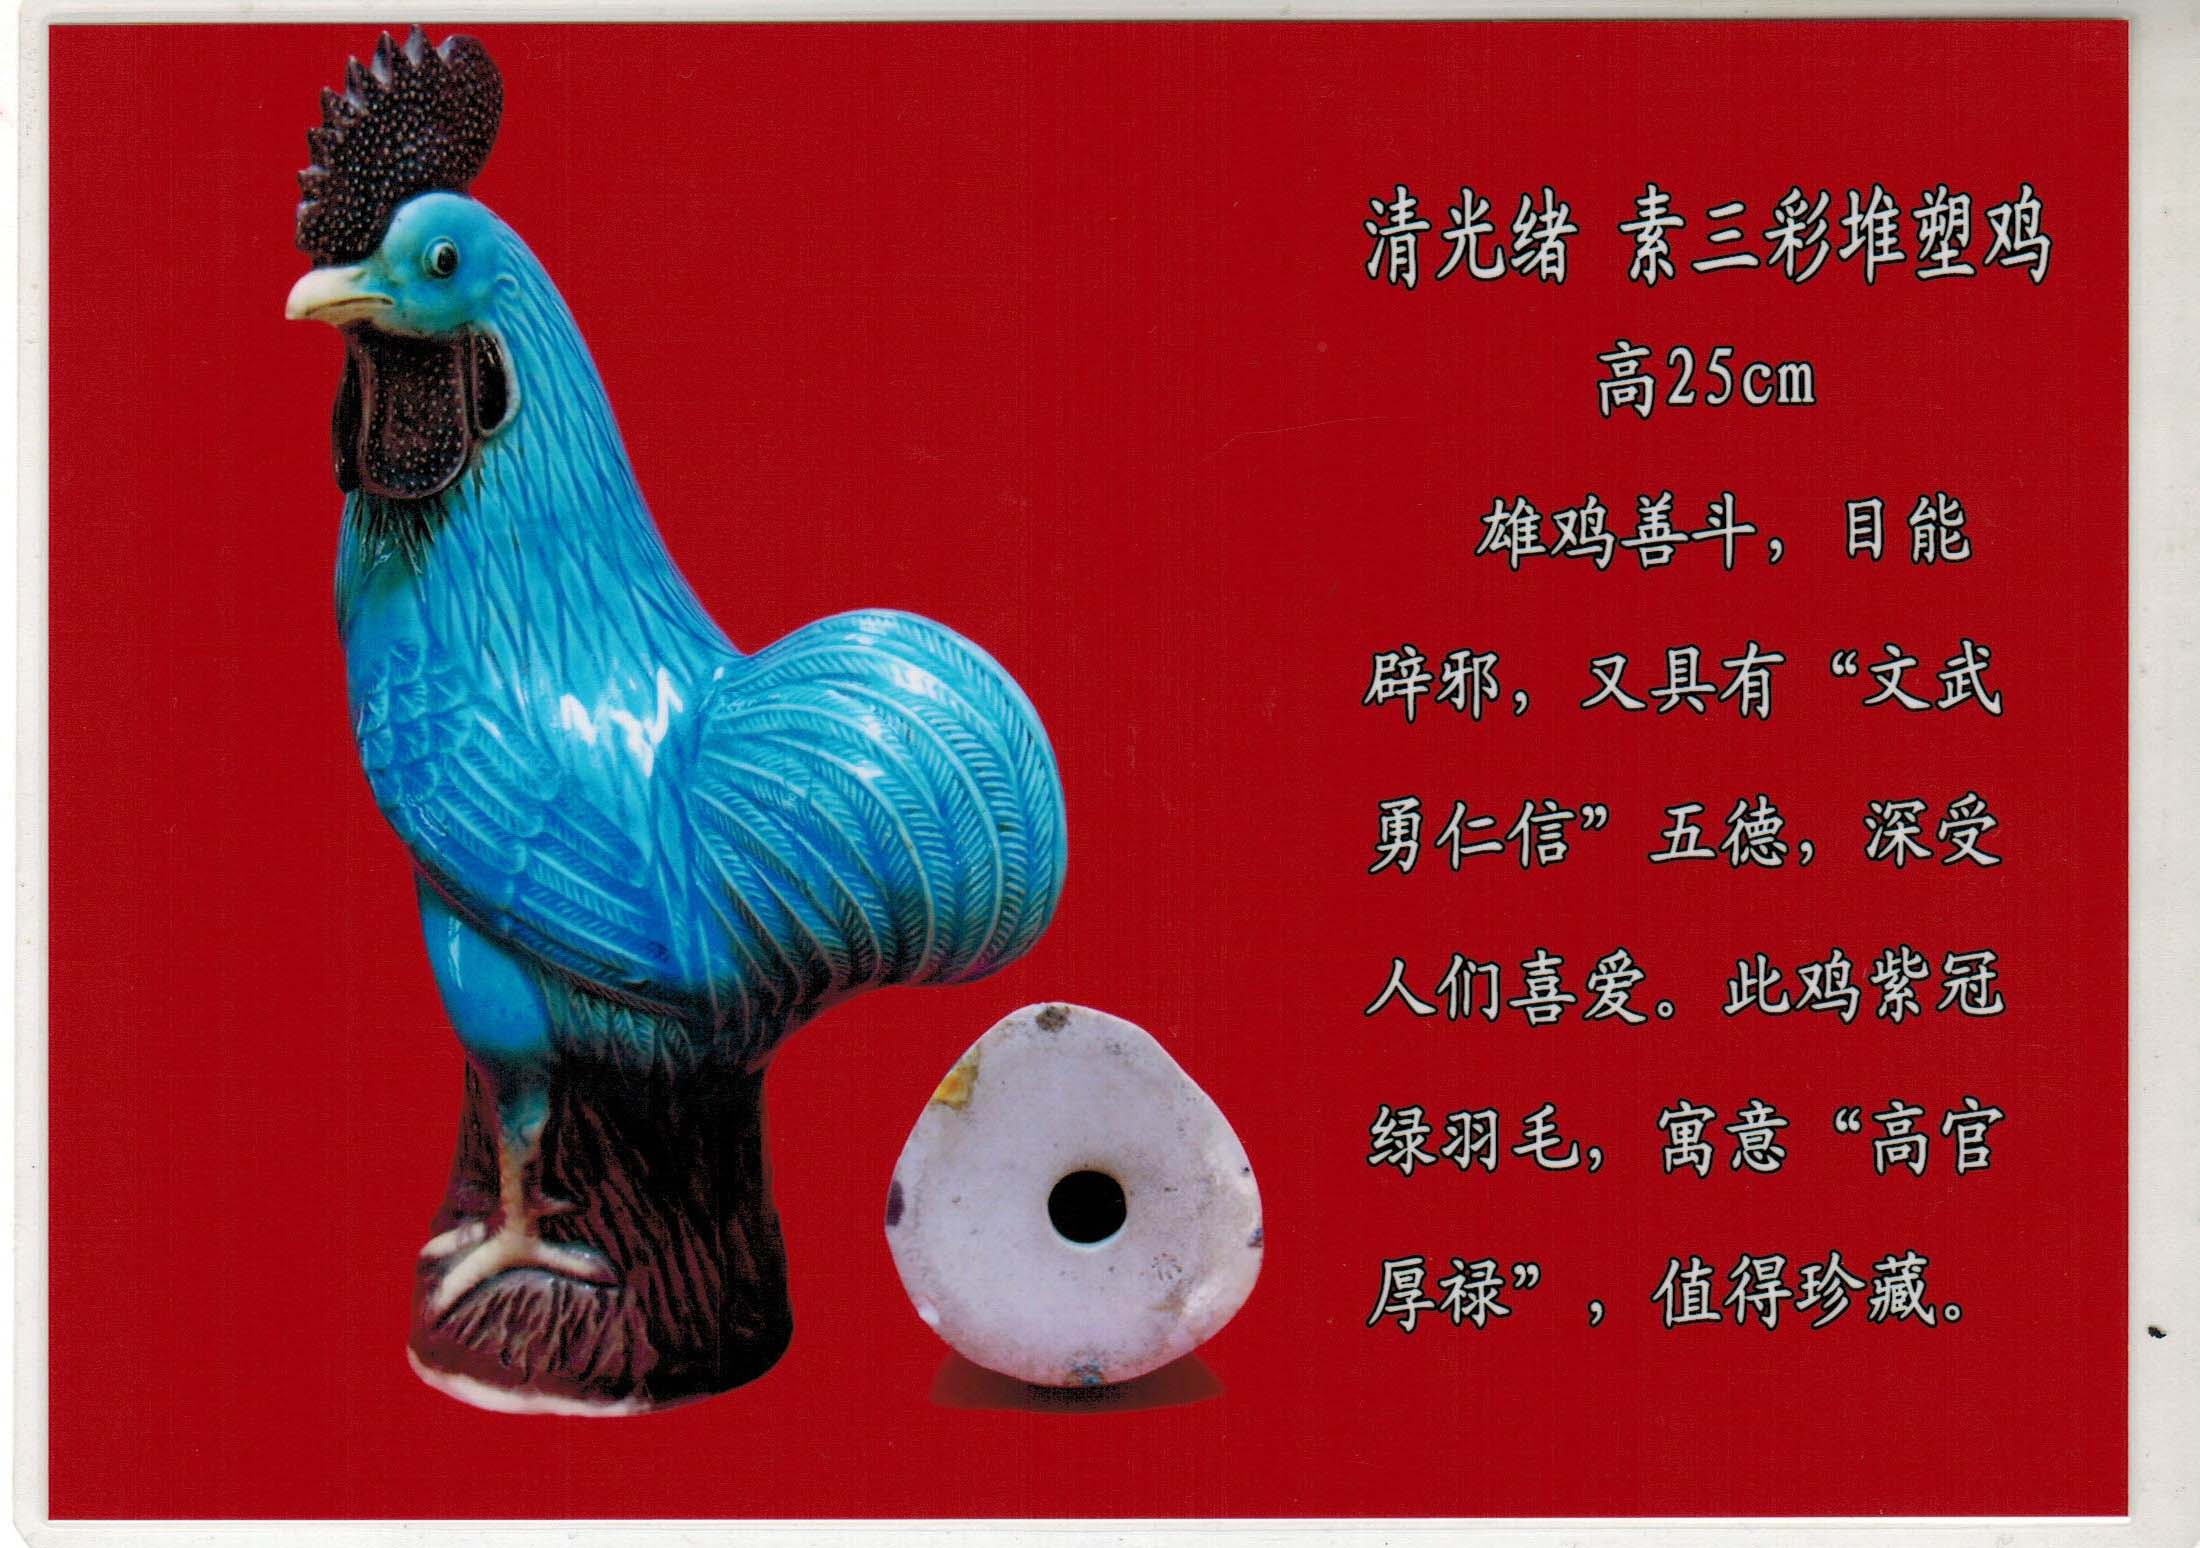 清光绪 素三彩堆塑鸡
高25cm
雄鸡善斗，目能
辟邪，又具有“文武
勇仁信”五德，深受
人们喜爱。此鸡紫冠
绿羽毛，寓意“高官
厚禄”，值得珍藏。